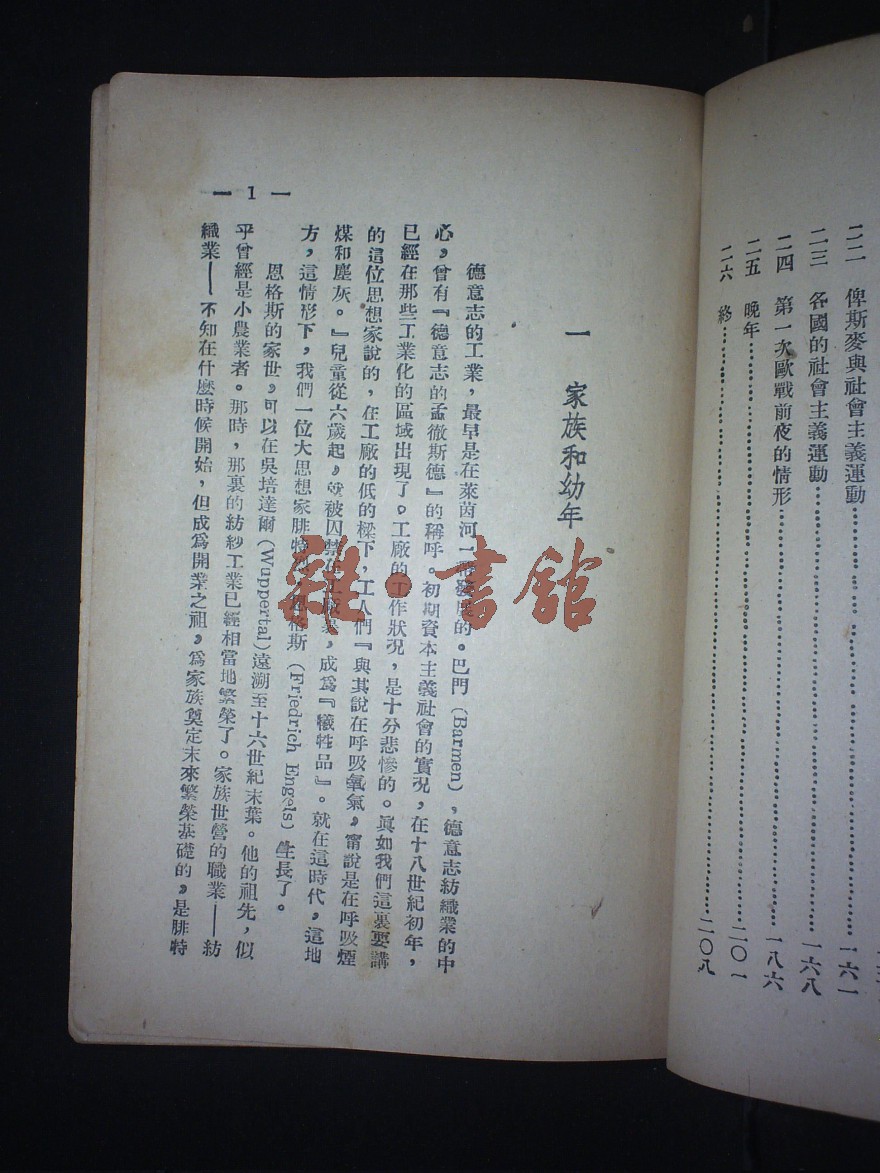 二二 俾斯麥與社會主義運動……一六一
二三 各國的社會主義運動……一六八
二四 第一次歐戰前夜的情形……一八六
二五 晚年……二〇一
二六 終……二〇八
一 家族和幼年
德意志的工業，最早是在萊茵河一帶發展的。巴門（Barmen），德意志紡織業的中
心，曾有『德意志的孟徹斯德』的稱呼。初期資本主義社會的實況，在十八世紀初年，
已經在那些工業化的區域出現了。工廠的工作狀況，是十分悲慘的。眞如我們這裏要講
的這位思想家說的，在工廠的低的樑下，工人們『與其說在呼吸氧氣，甯說是在呼吸煙
煤和塵灰。』兒童從六歲起，就被囚禁在工廠裏，成爲『犧牲品』。就在這時代，這地
方，這情形下，我們一位大思想家腓特烈·恩格斯（Friedrich Engels）生長了。
恩格斯的家世，可以在吳培達爾（Wuppertal）遠溯至十六世紀末葉。他的祖先，似
乎曾經是小農業者。那時，那裏的紡紗工業已經相當地繁榮了。家族世營的職業——紡
織業——不知在什麼時候開始，但成爲開業之祖，爲家族奠定末來繁榮基礎的，是腓特
— 1 —
雜·書館